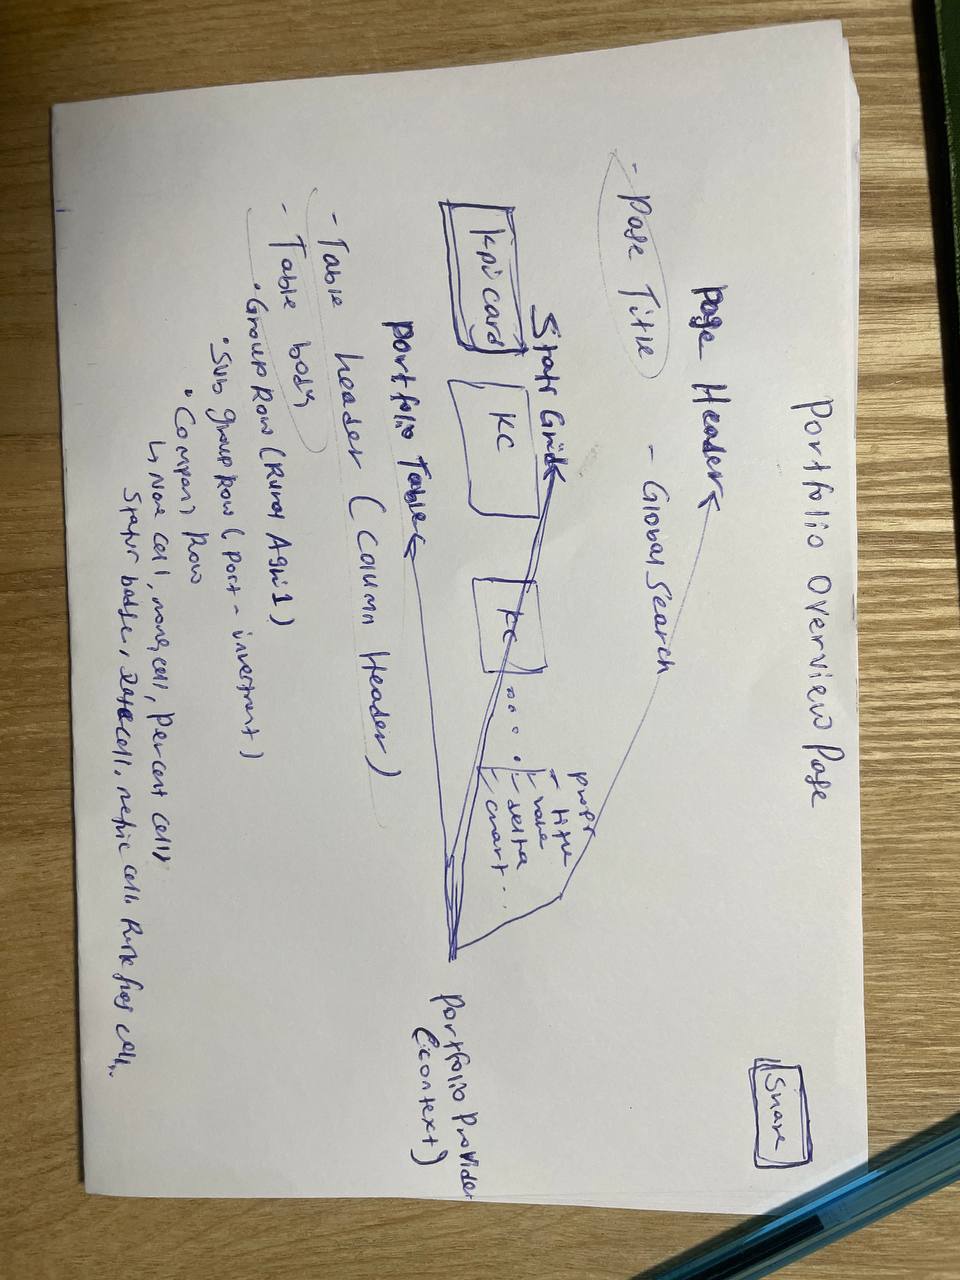 Portfolio Overview Page
Share
Page Header
- Page Title
- Global Search
Stats Grid
kpi card
KC
KC
props
- title
- value
- delta
- chart..
Portfolio Provider
(context)
Portfolio Table
- Table header (Column Header)
- Table body
• Group Row (Rural Agri 1)
• Sub group Row (Port - investment)
• Company Row
↳ Name cell, money cell, Percent cell,
Status badge, Date cell, metric cell, Risk flag cell..